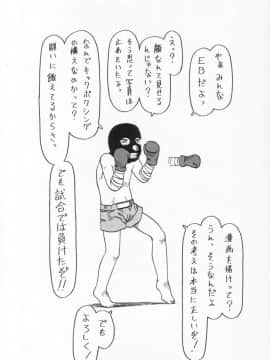 やぁみんな
EBだよっ
えっ?
顔なんで見せる
んじゃない?
そう思って写真は
止めといたよ。
なんでキックボクシング
の構えなのかって?
闘いに餓えてるからさっ
でも試合では負けたぞ!!
漫画を描けって?
うん、そうなんだよ
その考えは本当に正しいぞ!
でも
よろしく!